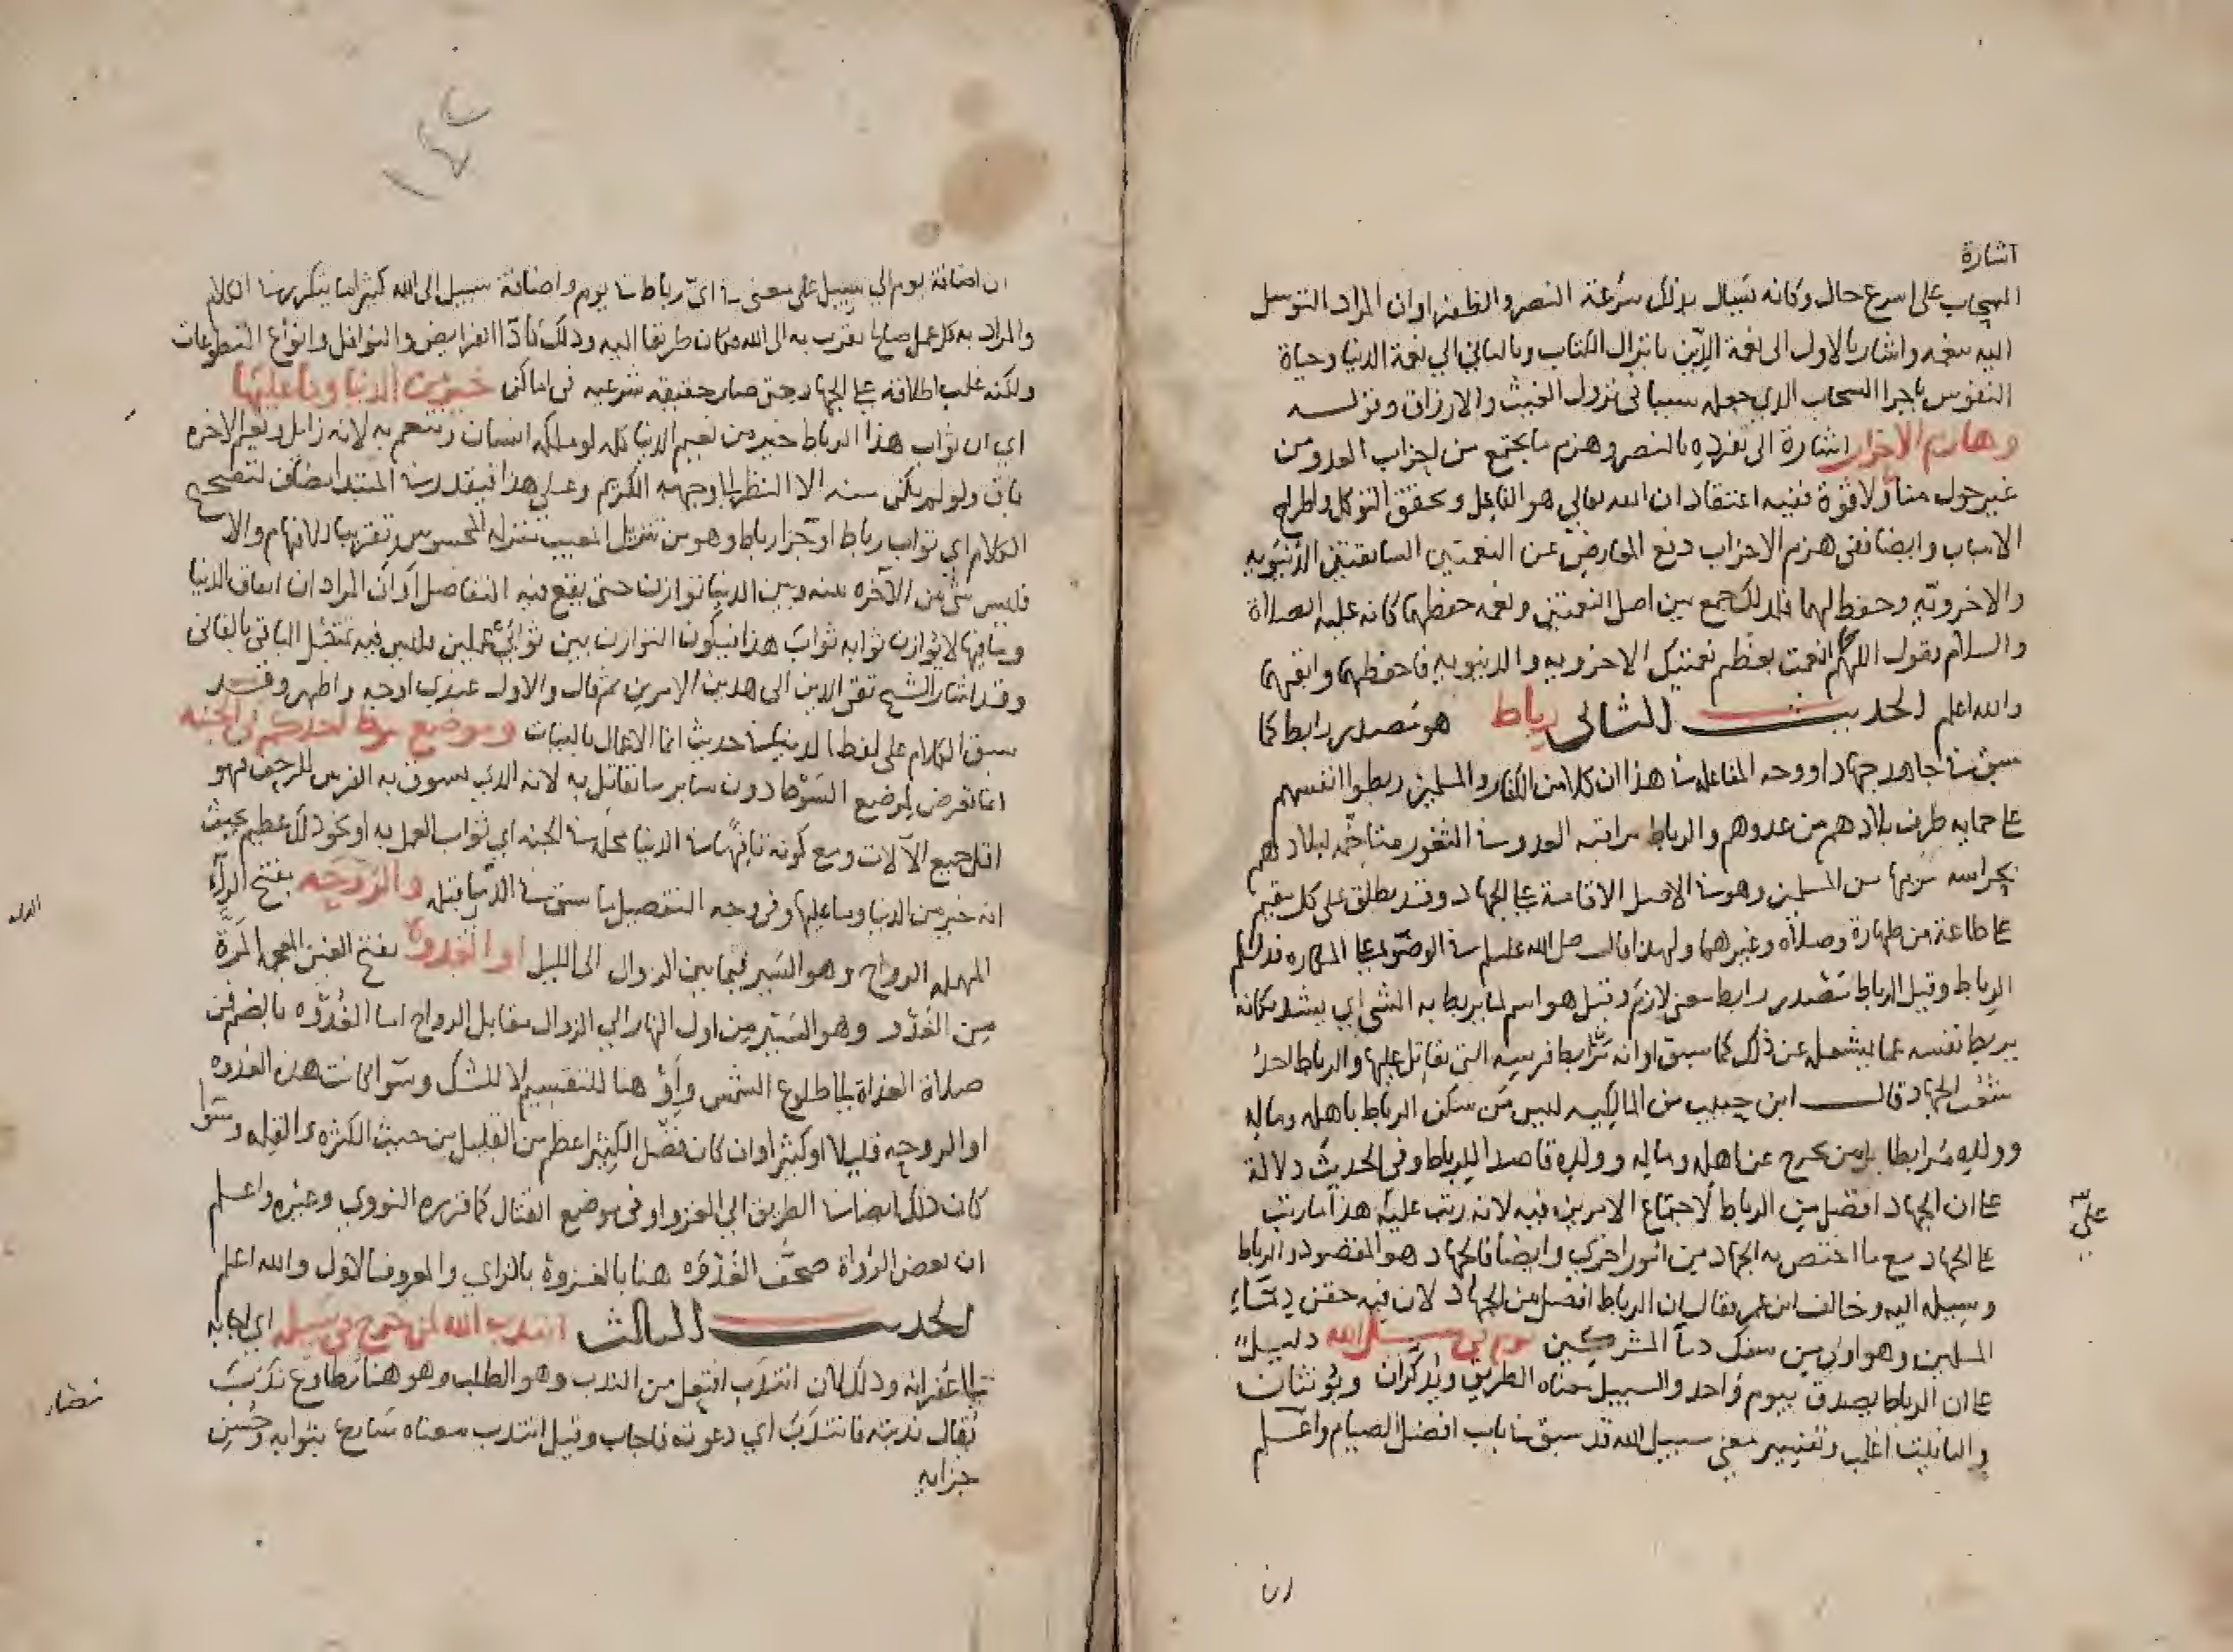 اشارة
السحاب على اسرع حال وكانه يسال بذلك سرعة النصر والظفر او ان المراد التوسل
اليه بنعمه واشار بالاول الى نعمة الدين بانزال الكتاب وبالثاني الي نعمة الدنيا وحياة
النفوس باجرا السحاب الذي جعله سببا في نزول الغيث والارزاق وقوله
وهازم الاحزاب اشارة الى تفرده بالنصر وهزم ما يجتمع من احزاب العدو من
غير حول منا ولا قوة ففيه اعتقاد ان الله تعالي هو الفاعل وتحقق التوكل واطراح
الاسباب وايضا ففي هزم الاحزاب دفع المعارض عن النعمتين السابقتين الدنيويه
والاخرويه وحفظ لهما فلذلك جمع بين اصل النعمتين ونعمه حفظهما كانه عليه الصلاة
والسلام يقول اللهم كما انعمت بعظم نعمتيك الاخرويه والدنيويه فاحفظهما وابقهما
والله اعلم الحديث الثاني رباط هو مصدر رابط كما
سبق في جاهد جهادا ووجه المفاعله في هذا ان كلا من الكفار والمسلمين ربطوا انفسهم
على حمايه طرف بلادهم من عدوهم والرباط مراقبه العدو في الثغور متاخمه لبلادهم
بحراسه من بها من المسلمين وهو في الاصل الاقامة على الجهاد وقد يطلق على كل مقيم
على طاعة من طهارة وصلاه وغيرهما ولهذا قال صلى الله عليه وسلم في الوضو على المكاره فذلكم
الرباط وقيل الرباط مصدر رابط بمعنى لازم وقيل هو اسم لما يربط به الشي اي يشد فكانه
يربط نفسه عما يشغله عن ذلك كما سبق او انه يرابط فرسه التي يقاتل عليها والرباط احد
شعب الجهاد قال ابن حبيب من المالكيه ليس من سكن الرباط باهله وماله
وولده مرابطا بل من يخرج عن اهله وماله وولده قاصدا للرباط وفي الحديث دلالة
على ان الجهاد افضل من الرباط لاجتماع الامرين فيه لانه رتب عليه هذا ما رتب
على الجهاد مع ما اختص به الجهاد من امور اخرى وايضا فالجهاد هو المقصود والرباط
وسيله اليه وخالف ابن عمر فقال ان الرباط افضل من الجهاد لان فيه حقن دماء
المسلمين وهو اولى من سفك دما المشركين يوم في سبيل الله دليل
على ان الرباط يصدق بيوم واحد والسبيل معناه الطريق ويذكران ويؤنثان
والتانيث اغلب وتفسير معنى سبيل الله قد سبق في باب افضل الصيام واعلم
ان
ان اضافة يوم الي سبيل على معنى في اي رباط في يوم واضافة سبيل الى الله كثيرا ما يتكرر في الكلام
والمراد به كل عمل صالح يتقرب به الى الله فكان طريقا اليه وذلك باداا الفرايض والنوافل وانواع التطوعات
ولكنه غلب اطلاقه على الجهاد حتى صار حقيقه شرعيه في اماكن خير من الدنيا وما عليها
اي ان ثواب هذا الرباط خير من نعيم الدنيا كله لو ملكه انسان وتنعم به لانه زايل ونعيم الاخره
باق ولو لم يكن منه الا النظر الى وجهه الكريم وعلى هذا فيقدر في المبتدا مضاف لتصحيح
الكلام اي ثواب رباط او جزا رباط وهو من تنزيل المغيب منزلة المحسوس تقريبا للافهام والا
فليس شي من الآخره بينه وبين الدنيا توازن حتى يقع فيه التفاضل او ان المراد ان انفاق الدنيا
وما فيها لا يوازن ثوابه ثواب هذا فيكون التوازن بين ثوابي عملين فليس فيه تمثيل الباقي بالفاني
وقد اشار الشيخ تقي الدين الى هذين الامرين ثم قال والاول عندي اوجه واظهر وقد
سبق الكلام على لفظ الدنيا في حديث انما الاعمال بالنيات وموضع سوط احدكم في الجنه
انما تعرض لموضع السوط دون ساير ما يقاتل به لانه الذي يسوق به الفرس للزحف فهو
اقل جميع الآلات ومع كونه تافها في الدنيا محله في الجنه اي ثواب العمل به او نحو ذلك عظيم بحيث
انه خير من الدنيا وما عليها وفي وجه التفضيل ما سبق في الذي قبله والروحه بفتح الراء
المهمله الرواح وهو السير فيما بين الزوال الى الليل او الغدوه بفتح الغين المعجمه المرة
من الغدو وهو السير من اول النهار الي الزوال مقابل الرواح اما الغدوه بالضم فمن
صلاة الغداة الى طلوع الشمس واو هنا للتقسيم لا للشك وسوا كانت هذه الغدوه
او الروحه قليلا او كثيرا وان كان فضل الكثير اعظم من القليل من حيث الكثره والقله وسوا
كان ذلك ايضا في الطريق الي الغزو او في موضع القتال كما قرره النووي وغيره واعلم
ان بعض الرواة صحف الغدوه هنا بالغزوة بالزاي والمعروف الاول والله اعلم
الحديث الثالث انتدب الله لمن خرج في سبيله اي اجابه
الى غفرانه وذلك لان انتدب افتعل من الندب وهو الطلب وهو هنا مطاوع ندب
يقال ندبته فانتدب اي دعوته فاجاب وقيل انتدب معناه سارع بثوابه وحسن
جزايه